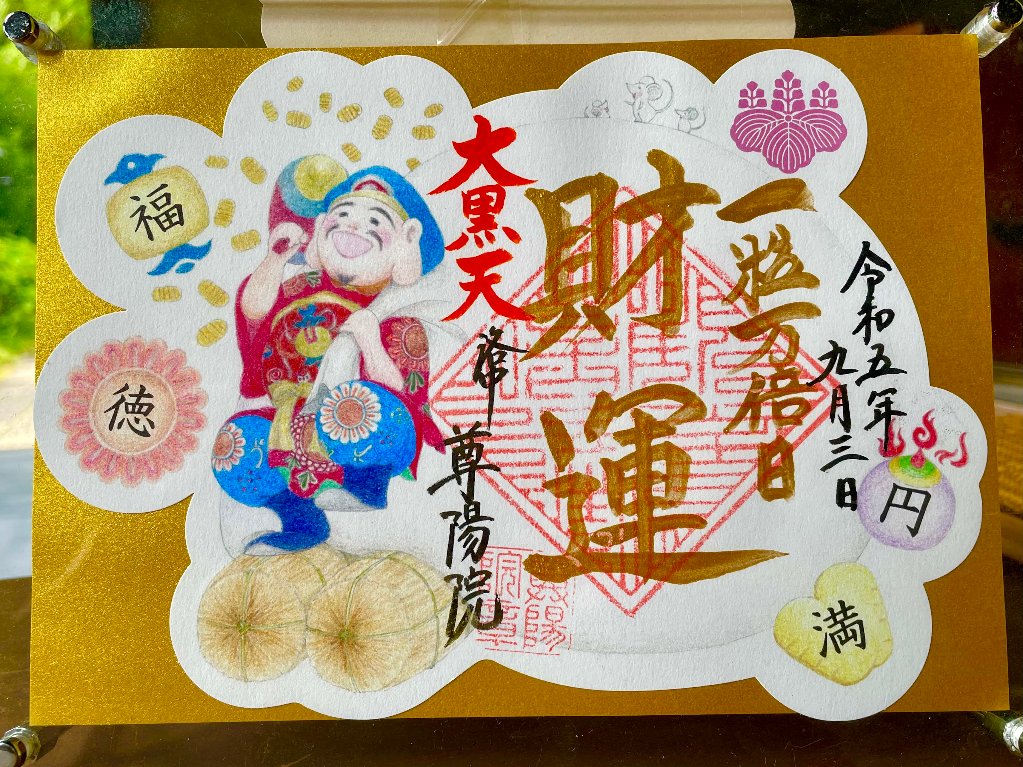 令和五年
九月三日
一粒万倍日
財運
大黒天
尊陽院
福
徳
円
満